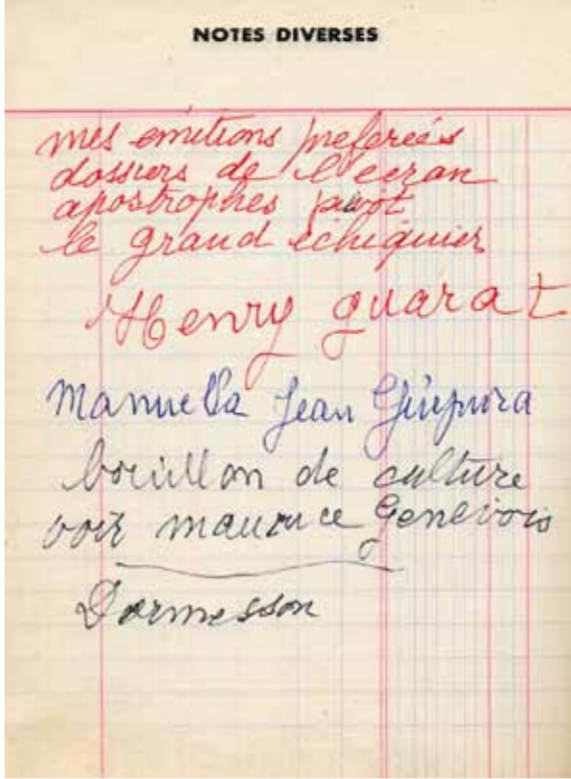 NOTES DIVERSES
mes emitions preferées
dossiers de l'ecran
apostrophes pivot
le grand échiquier
Henry guarat
Manuella Jean
bouillon de culture
voir maurice Genevois
Dormesson